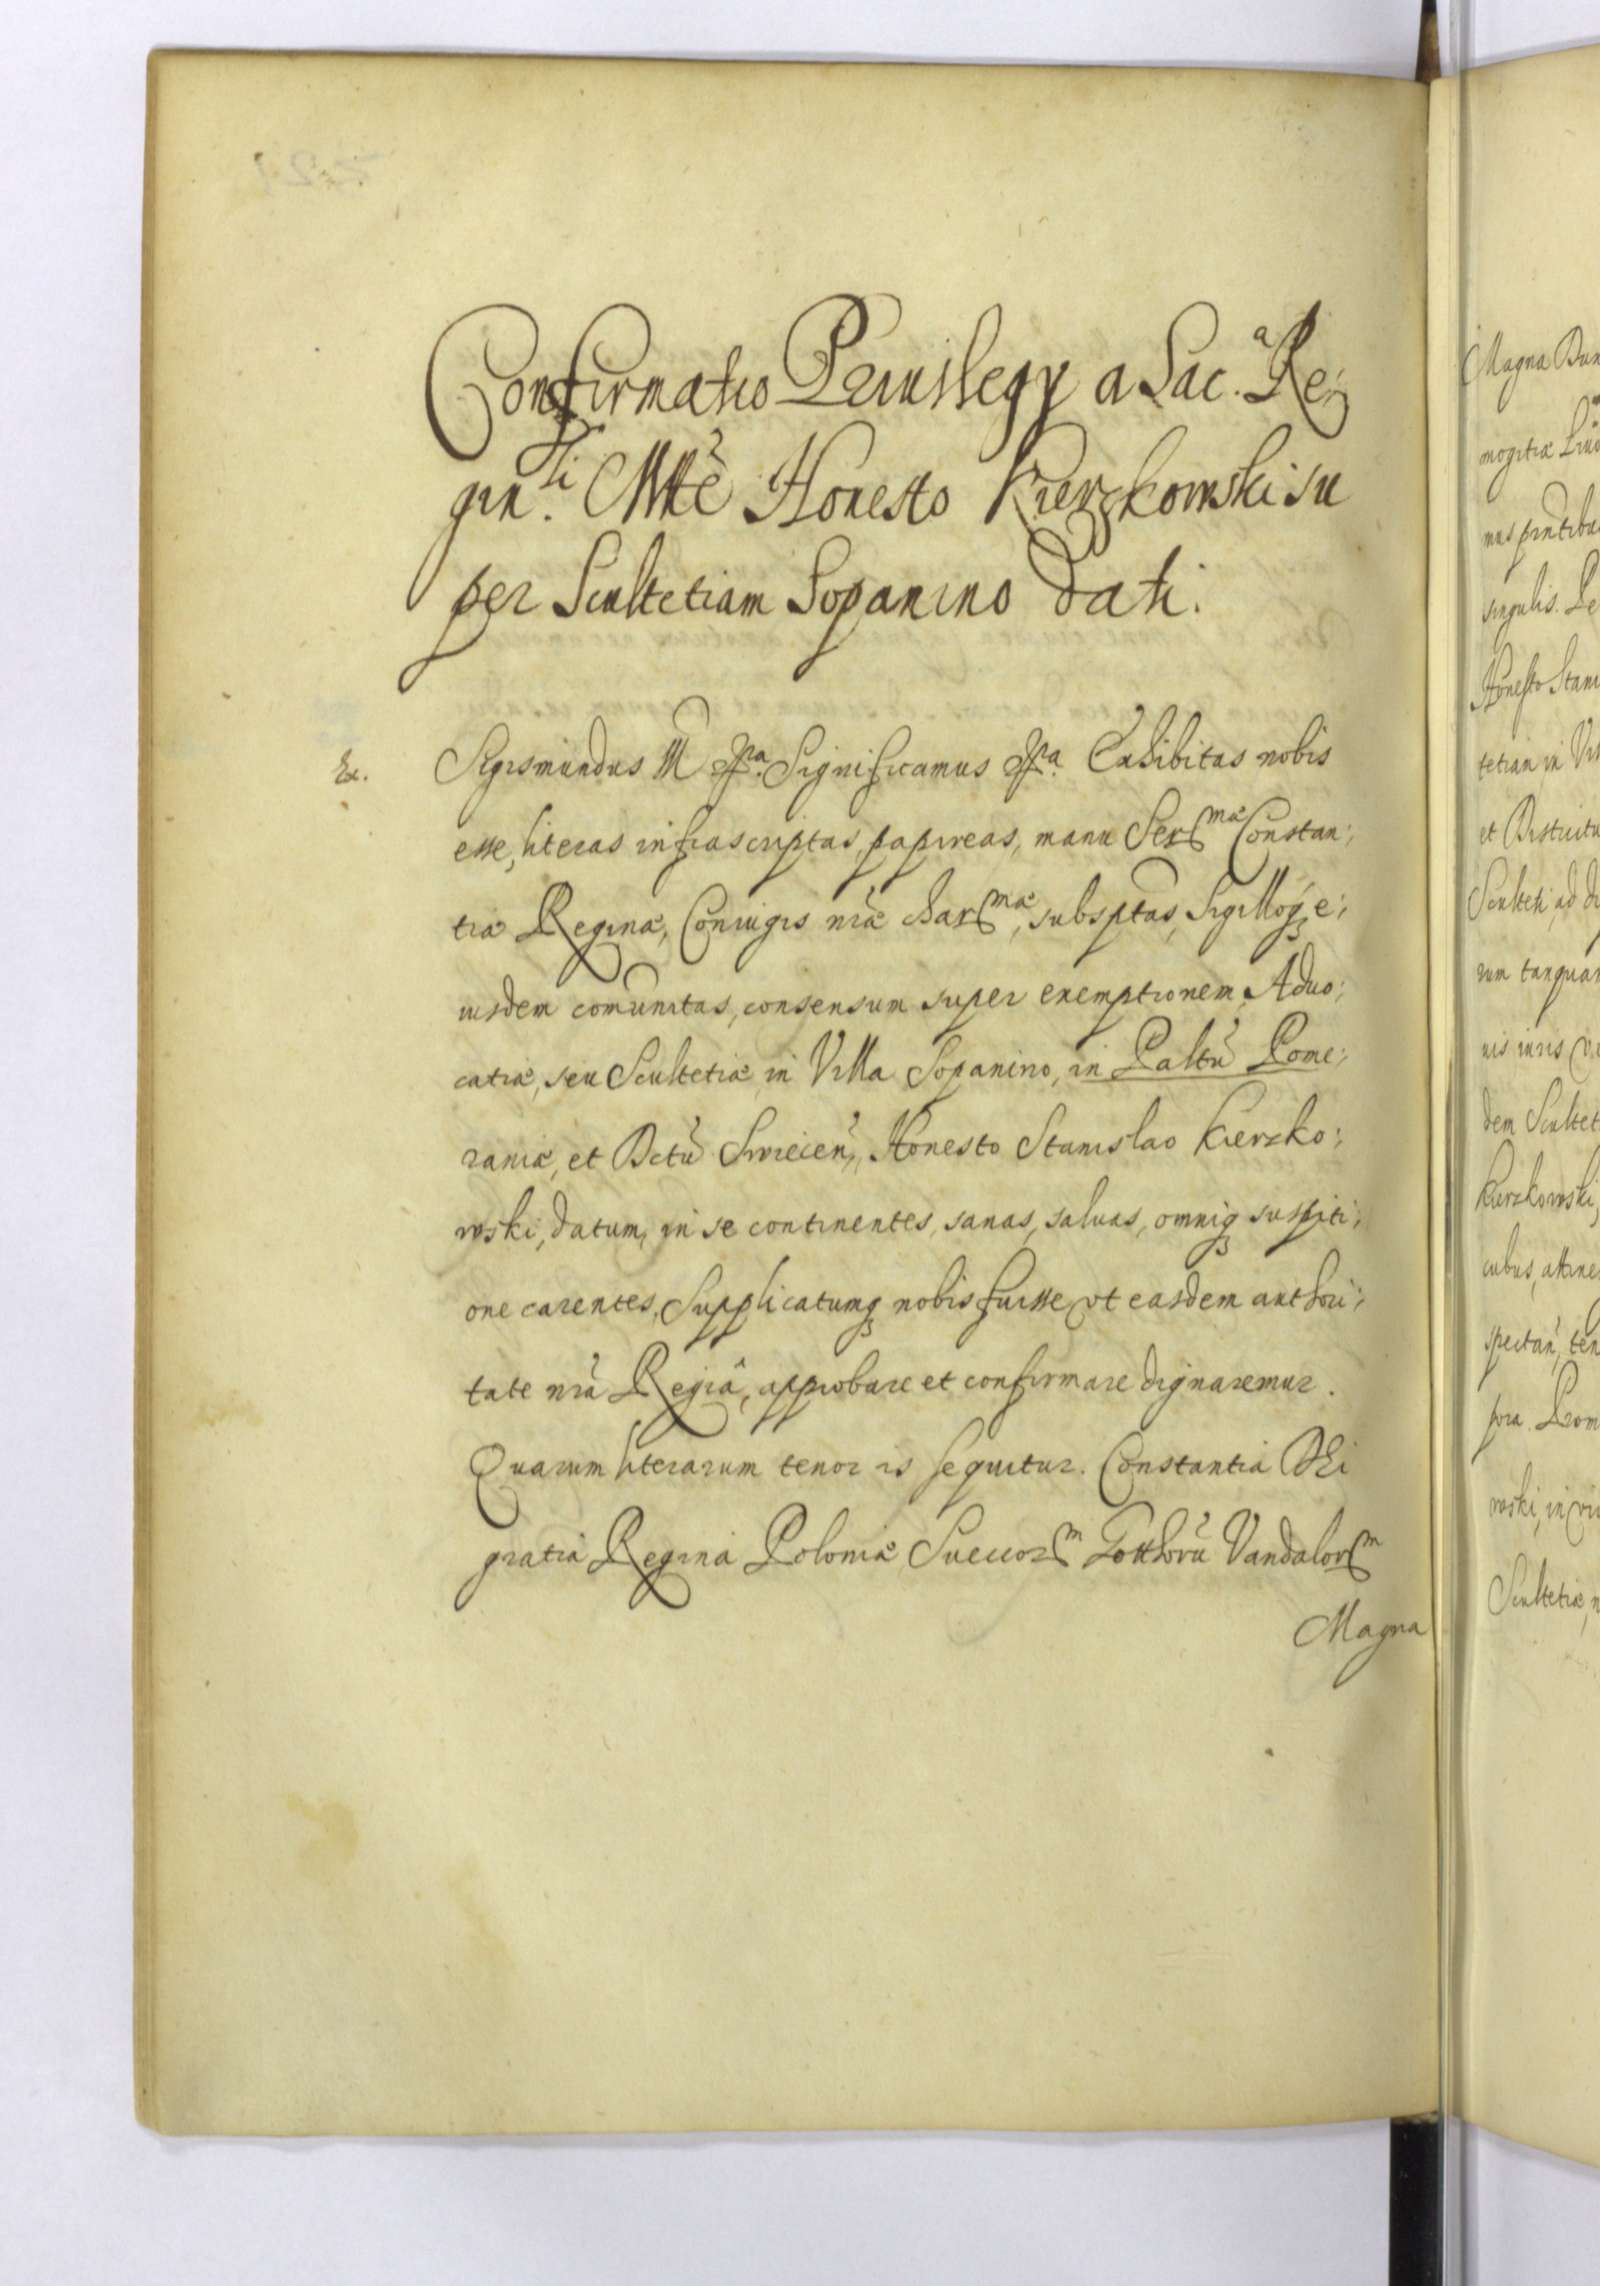 Confirmatio Priuilegy a Sac.ª Re;
gin.li Mtte Honesto Kierzkowski su
per Scultetiam Sopanino dati.
Ex.
Sigismundus III &ra. Significamus &ra. Exhibitas nobis
esse, literas infrascriptas, papireas, manu Serma Constan;
tiæ Reginæ, Coniugis nræ charmæ, subsptas, sigilloqȝ e;
iusdem comunitas, consensum super exemptionem Aduo;
catiæ, seu Scultetiæ in Villa Sopanino, in Paltu Pome;
raniæ, et Dctu Swiecen, Honesto Stanislao Kierzko;
wski, datum, in se continentes, sanas, saluas, omniqȝ suspiti;
one carentes, Supplicatumqȝ nobis fuisse vt easdem authori;
tate nra Regiâ, approbare et confirmare dignaremur.
Quarum literarum tenor is sequitur. Constantia Dei
gratia Regina Poloniæ Sueciorm Gotthoru Vandalorm
Magna
Magna Du
mogitiæ
singulis.
Honesto Stani
tetiam in Vi
et Districtu
Sculteti, ad
rum tanquam
nis iuris
dem Scultet
Kierzkowski,
cubus, attine
spectan, ten
pora. Prom
wski, in
Scultetiæ,